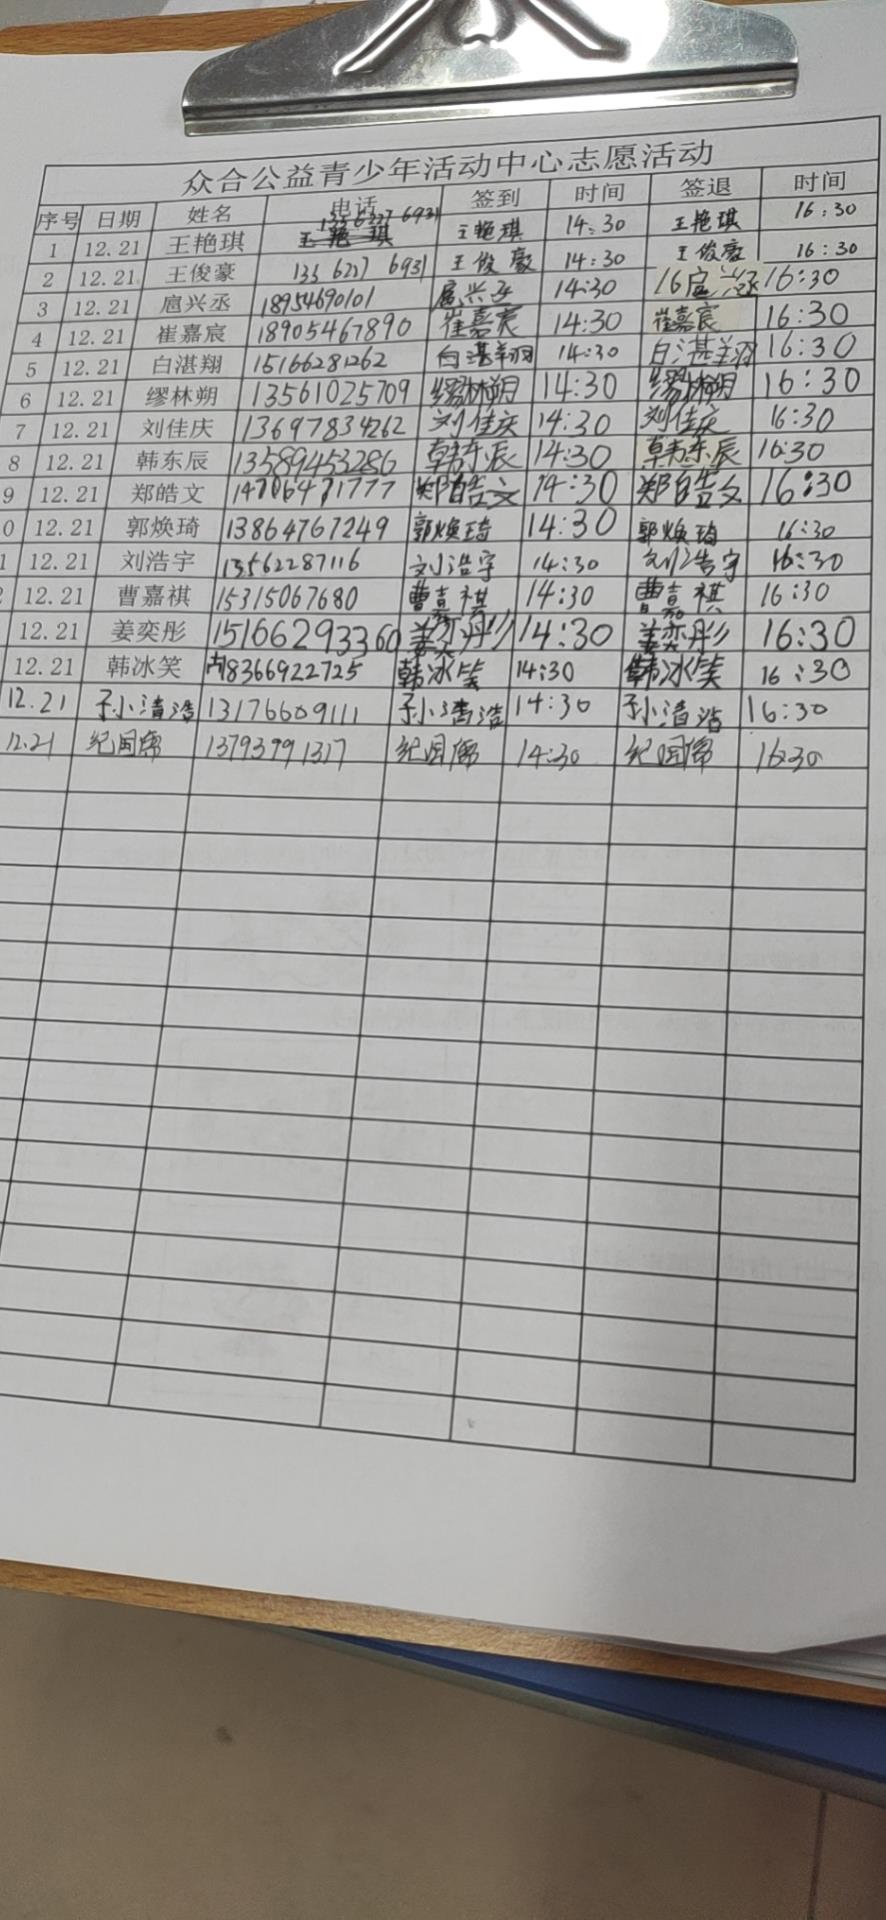 众合公益青少年活动中心志愿活动
序号 日期 姓名 电话 签到 时间 签退 时间
1 12.21 王艳琪 135 6227 6931 王艳琪 14:30 王艳琪 16:30
2 12.21 王俊豪 135 6227 6931 王俊豪 14:30 王俊豪 16:30
3 12.21 扈兴丞 18954690101 扈兴丞 14:30 扈兴丞 16:30
4 12.21 崔嘉宸 18905467890 崔嘉宸 14:30 崔嘉宸 16:30
5 12.21 白湛翔 15166281262 白湛翔 14:30 白湛翔 16:30
6 12.21 缪林朔 13561025709 缪林朔 14:30 缪林朔 16:30
7 12.21 刘佳庆 13697834262 刘佳庆 14:30 刘佳庆 16:30
8 12.21 韩东辰 13589453286 韩东辰 14:30 韩东辰 16:30
9 12.21 郑皓文 14706471777 郑皓文 14:30 郑皓文 16:30
0 12.21 郭焕琦 13864767249 郭焕琦 14:30 郭焕琦 16:30
1 12.21 刘浩宇 13562287116 刘浩宇 14:30 刘浩宇 16:30
12.21 曹嘉祺 15315067680 曹嘉祺 14:30 曹嘉祺 16:30
12.21 姜奕彤 15166293360 姜奕彤 14:30 姜奕彤 16:30
12.21 韩冰笑 18366922725 韩冰笑 14:30 韩冰笑 16:30
12.21 孙清浩 13176609111 孙清浩 14:30 孙清浩 16:30
12.21 纪国儒 13793991317 纪国儒 14:30 纪国儒 16:30